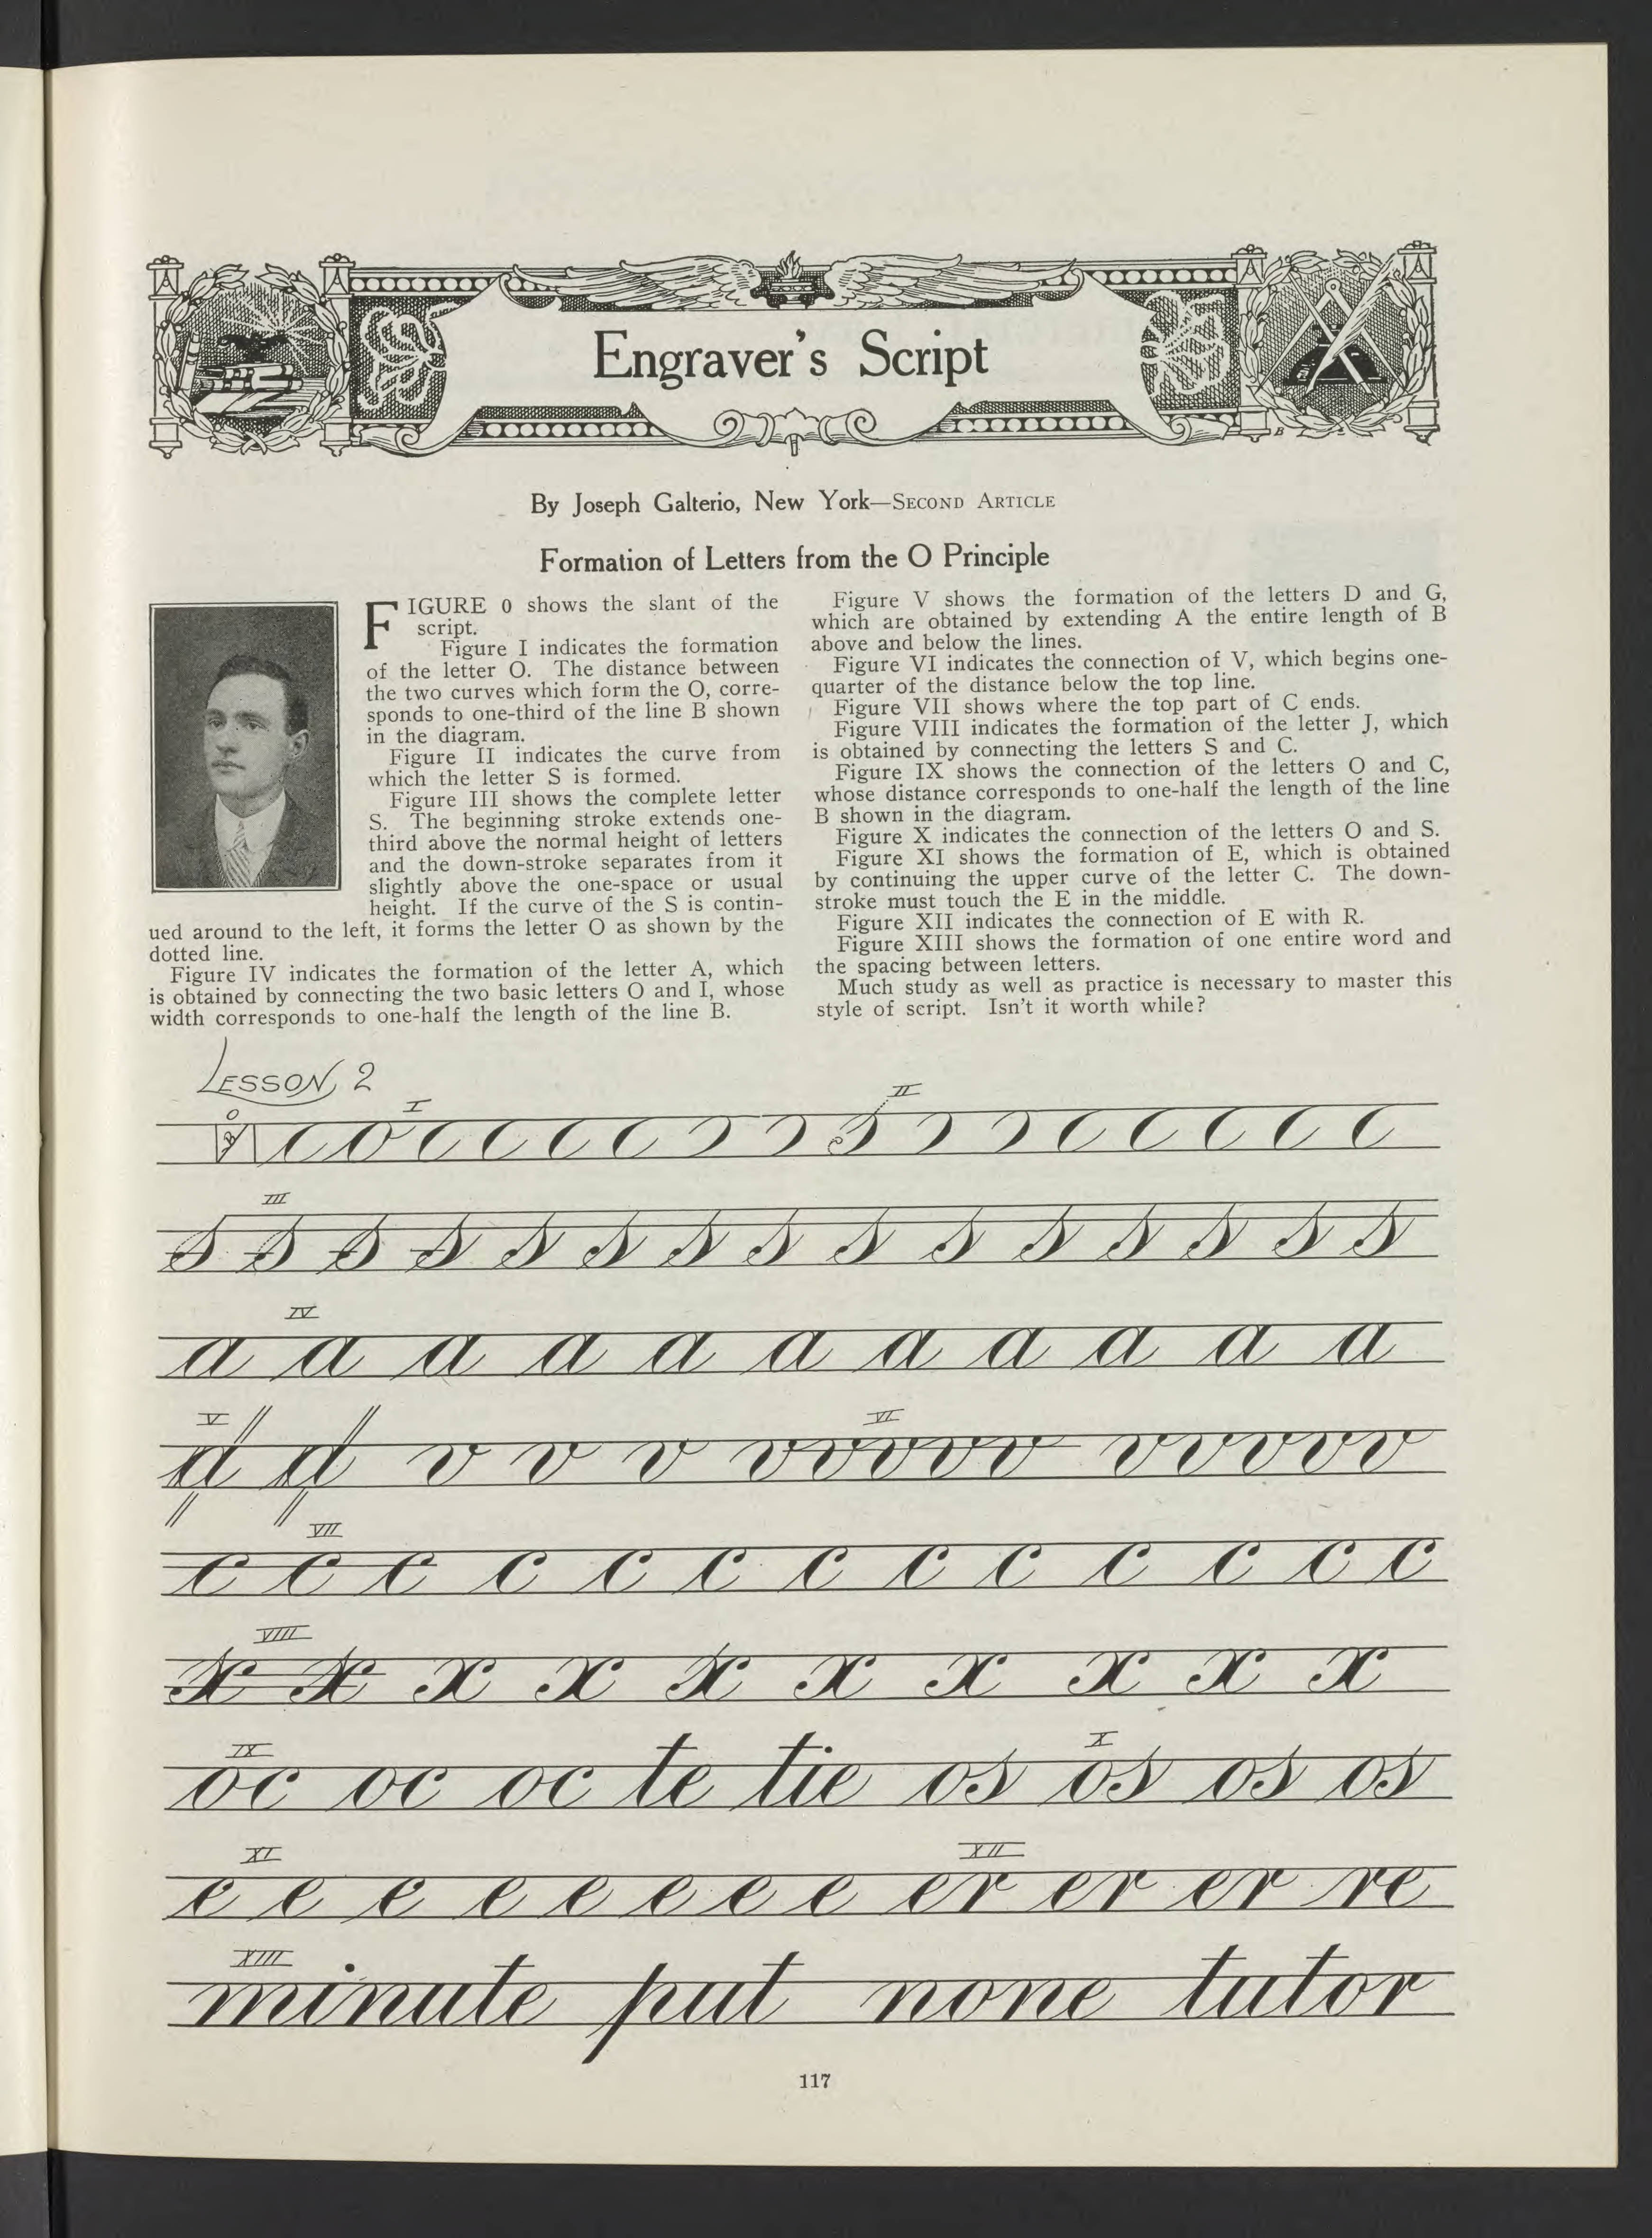 Engraver's Script
By Joseph Galterio, New York—Second Article
Formation of Letters from the O Principle
FIGURE 0 shows the slant of the
script.
Figure I indicates the formation
of the letter O. The distance between
the two curves which form the O, corre-
sponds to one-third of the line B shown
in the diagram.
Figure II indicates the curve from
which the letter S is formed.
Figure III shows the complete letter
S. The beginning stroke extends one-
third above the normal height of letters
and the down-stroke separates from it
slightly above the one-space or usual
height. If the curve of the S is contin-
ued around to the left, it forms the letter O as shown by the
dotted line.
Figure IV indicates the formation of the letter A, which
is obtained by connecting the two basic letters O and I, whose
width corresponds to one-half the length of the line B.
Figure V shows the formation of the letters D and G,
which are obtained by extending A the entire length of B
above and below the lines.
Figure VI indicates the connection of V, which begins one-
quarter of the distance below the top line.
Figure VII shows where the top part of C ends.
Figure VIII indicates the formation of the letter J, which
is obtained by connecting the letters S and C.
Figure IX shows the connection of the letters O and C,
whose distance corresponds to one-half the length of the line
B shown in the diagram.
Figure X indicates the connection of the letters O and S.
Figure XI shows the formation of E, which is obtained
by continuing the upper curve of the letter C. The down-
stroke must touch the E in the middle.
Figure XII indicates the connection of E with R.
Figure XIII shows the formation of one entire word and
the spacing between letters.
Much study as well as practice is necessary to master this
style of script. Isn't it worth while?
LESSON 2
O I II
B
III
s s s s s s s s s s s s s s s
IV
a a a a a a a a a a a
V VI
d d v v v vvvvv vvvvv
VII
c c c c c c c c c c c c c
VIII
x x x x x x x x x x
IX X
oc oc oc te tie os os os os
XI XII
e e e e e e e e er er er re
XIII
minute put none tutor
117